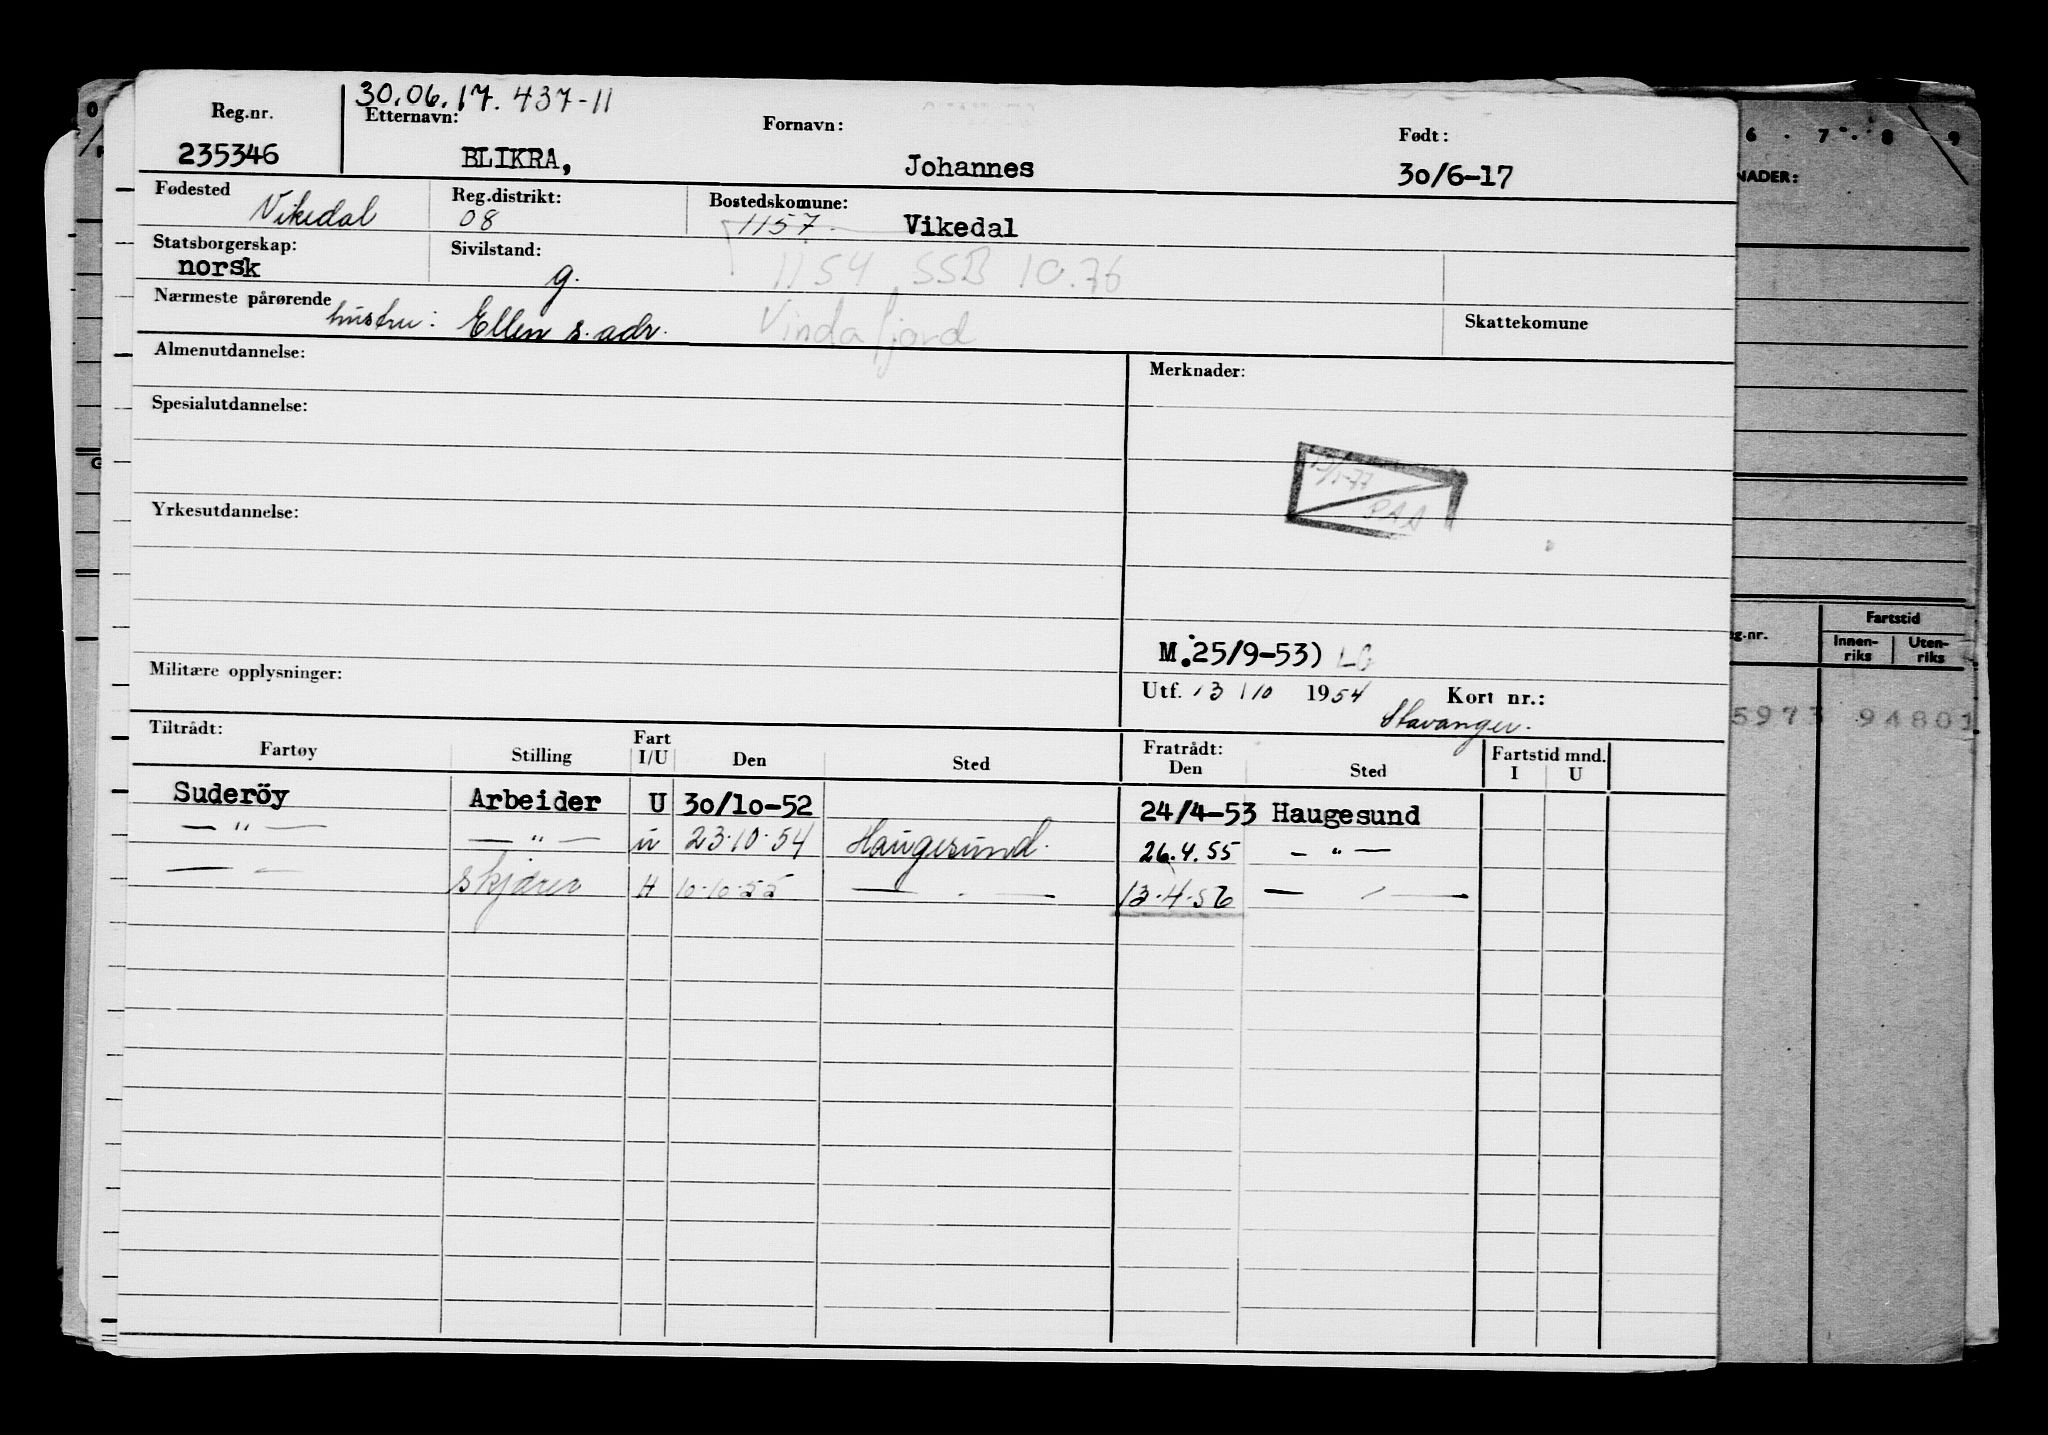 30.06.17. 437-11
Reg.nr. Etternavn: Fornavn: Født:
235346 BLIKRA, Johannes 30/6-17
Fødested Vikedal Reg.distrikt: 08 Bostedskomune: 1157 Vikedal
Statsborgerskap: norsk Sivilstand: g. 1154 SSB 10.76
Nærmeste pårørende hustru: Ellen s. adr. Vindafjord Skattekomune
Almenutdannelse: Merknader:
Spesialutdannelse:
PAA
Yrkesutdannelse:
M. 25/9-53)
Militære opplysninger: Utf. 13/10 1954 Kort nr.:
Stavanger.
Tiltrådt: Fratrådt: Fartstid mnd.
Fartøy Stilling Fart I/U Den Sted Den Sted I U
Suderöy Arbeider U 30/10-52 24/4-53 Haugesund
— " — — " — u 23.10.54 Haugesund. 26.4.55 — " —
— — skjærer H 10-10-55 — . — 13.4.56 — / —
6 . 7 . 8 . 9
NADER:
g.nr. Fartstid
Innen-riks Uten-riks
5973 94801